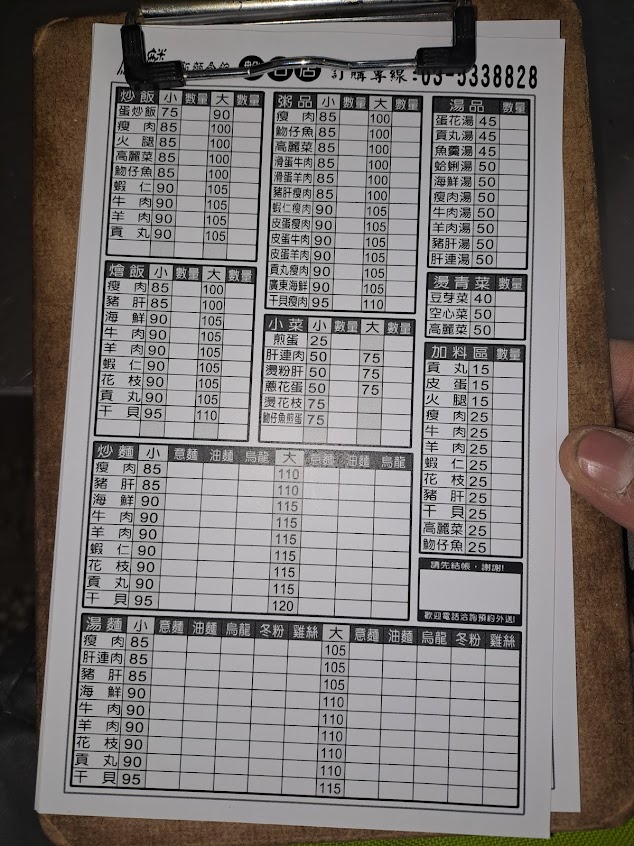 訂購專線:03-5338828
炒飯 小 數量 大 數量
蛋炒飯 75 90
瘦肉 85 100
火腿 85 100
高麗菜 85 100
魩仔魚 85 100
蝦仁 90 105
牛肉 90 105
羊肉 90 105
貢丸 90 105
燴飯 小 數量 大 數量
瘦肉 85 100
豬肝 85 100
海鮮 90 105
牛肉 90 105
羊肉 90 105
蝦仁 90 105
花枝 90 105
貢丸 90 105
干貝 95 110
粥品 小 數量 大 數量
瘦肉 85 100
魩仔魚 85 100
高麗菜 85 100
滑蛋牛肉 85 100
滑蛋羊肉 85 100
豬肝瘦肉 85 100
蝦仁瘦肉 90 105
皮蛋瘦肉 90 105
皮蛋牛肉 90 105
皮蛋羊肉 90 105
貢丸瘦肉 90 105
廣東海鮮 90 105
干貝瘦肉 95 110
小菜 小 數量 大 數量
煎蛋 25
肝連肉 50 75
燙粉肝 50 75
蔥花蛋 50 75
燙花枝 75
魩仔魚煎蛋 75
湯品 數量
蛋花湯 45
貢丸湯 45
魚羹湯 45
蛤蜊湯 50
海鮮湯 50
瘦肉湯 50
牛肉湯 50
羊肉湯 50
豬肝湯 50
肝連湯 50
燙青菜 數量
豆芽菜 40
空心菜 50
高麗菜 50
加料區 數量
貢丸 15
皮蛋 15
火腿 15
瘦肉 25
牛肉 25
羊肉 25
蝦仁 25
花枝 25
豬肝 25
干貝 25
高麗菜 25
魩仔魚 25
請先結帳,謝謝!
歡迎電話洽詢預約外送!
炒麵 小 意麵 油麵 烏龍 大 意麵 油麵 烏龍
瘦肉 85 110
豬肝 85 110
海鮮 90 115
牛肉 90 115
羊肉 90 115
蝦仁 90 115
花枝 90 115
貢丸 90 115
干貝 95 120
湯麵 小 意麵 油麵 烏龍 冬粉 雞絲 大 意麵 油麵 烏龍 冬粉 雞絲
瘦肉 85 105
肝連肉 85 105
豬肝 85 105
海鮮 90 110
牛肉 90 110
羊肉 90 110
花枝 90 110
貢丸 90 110
干貝 95 115